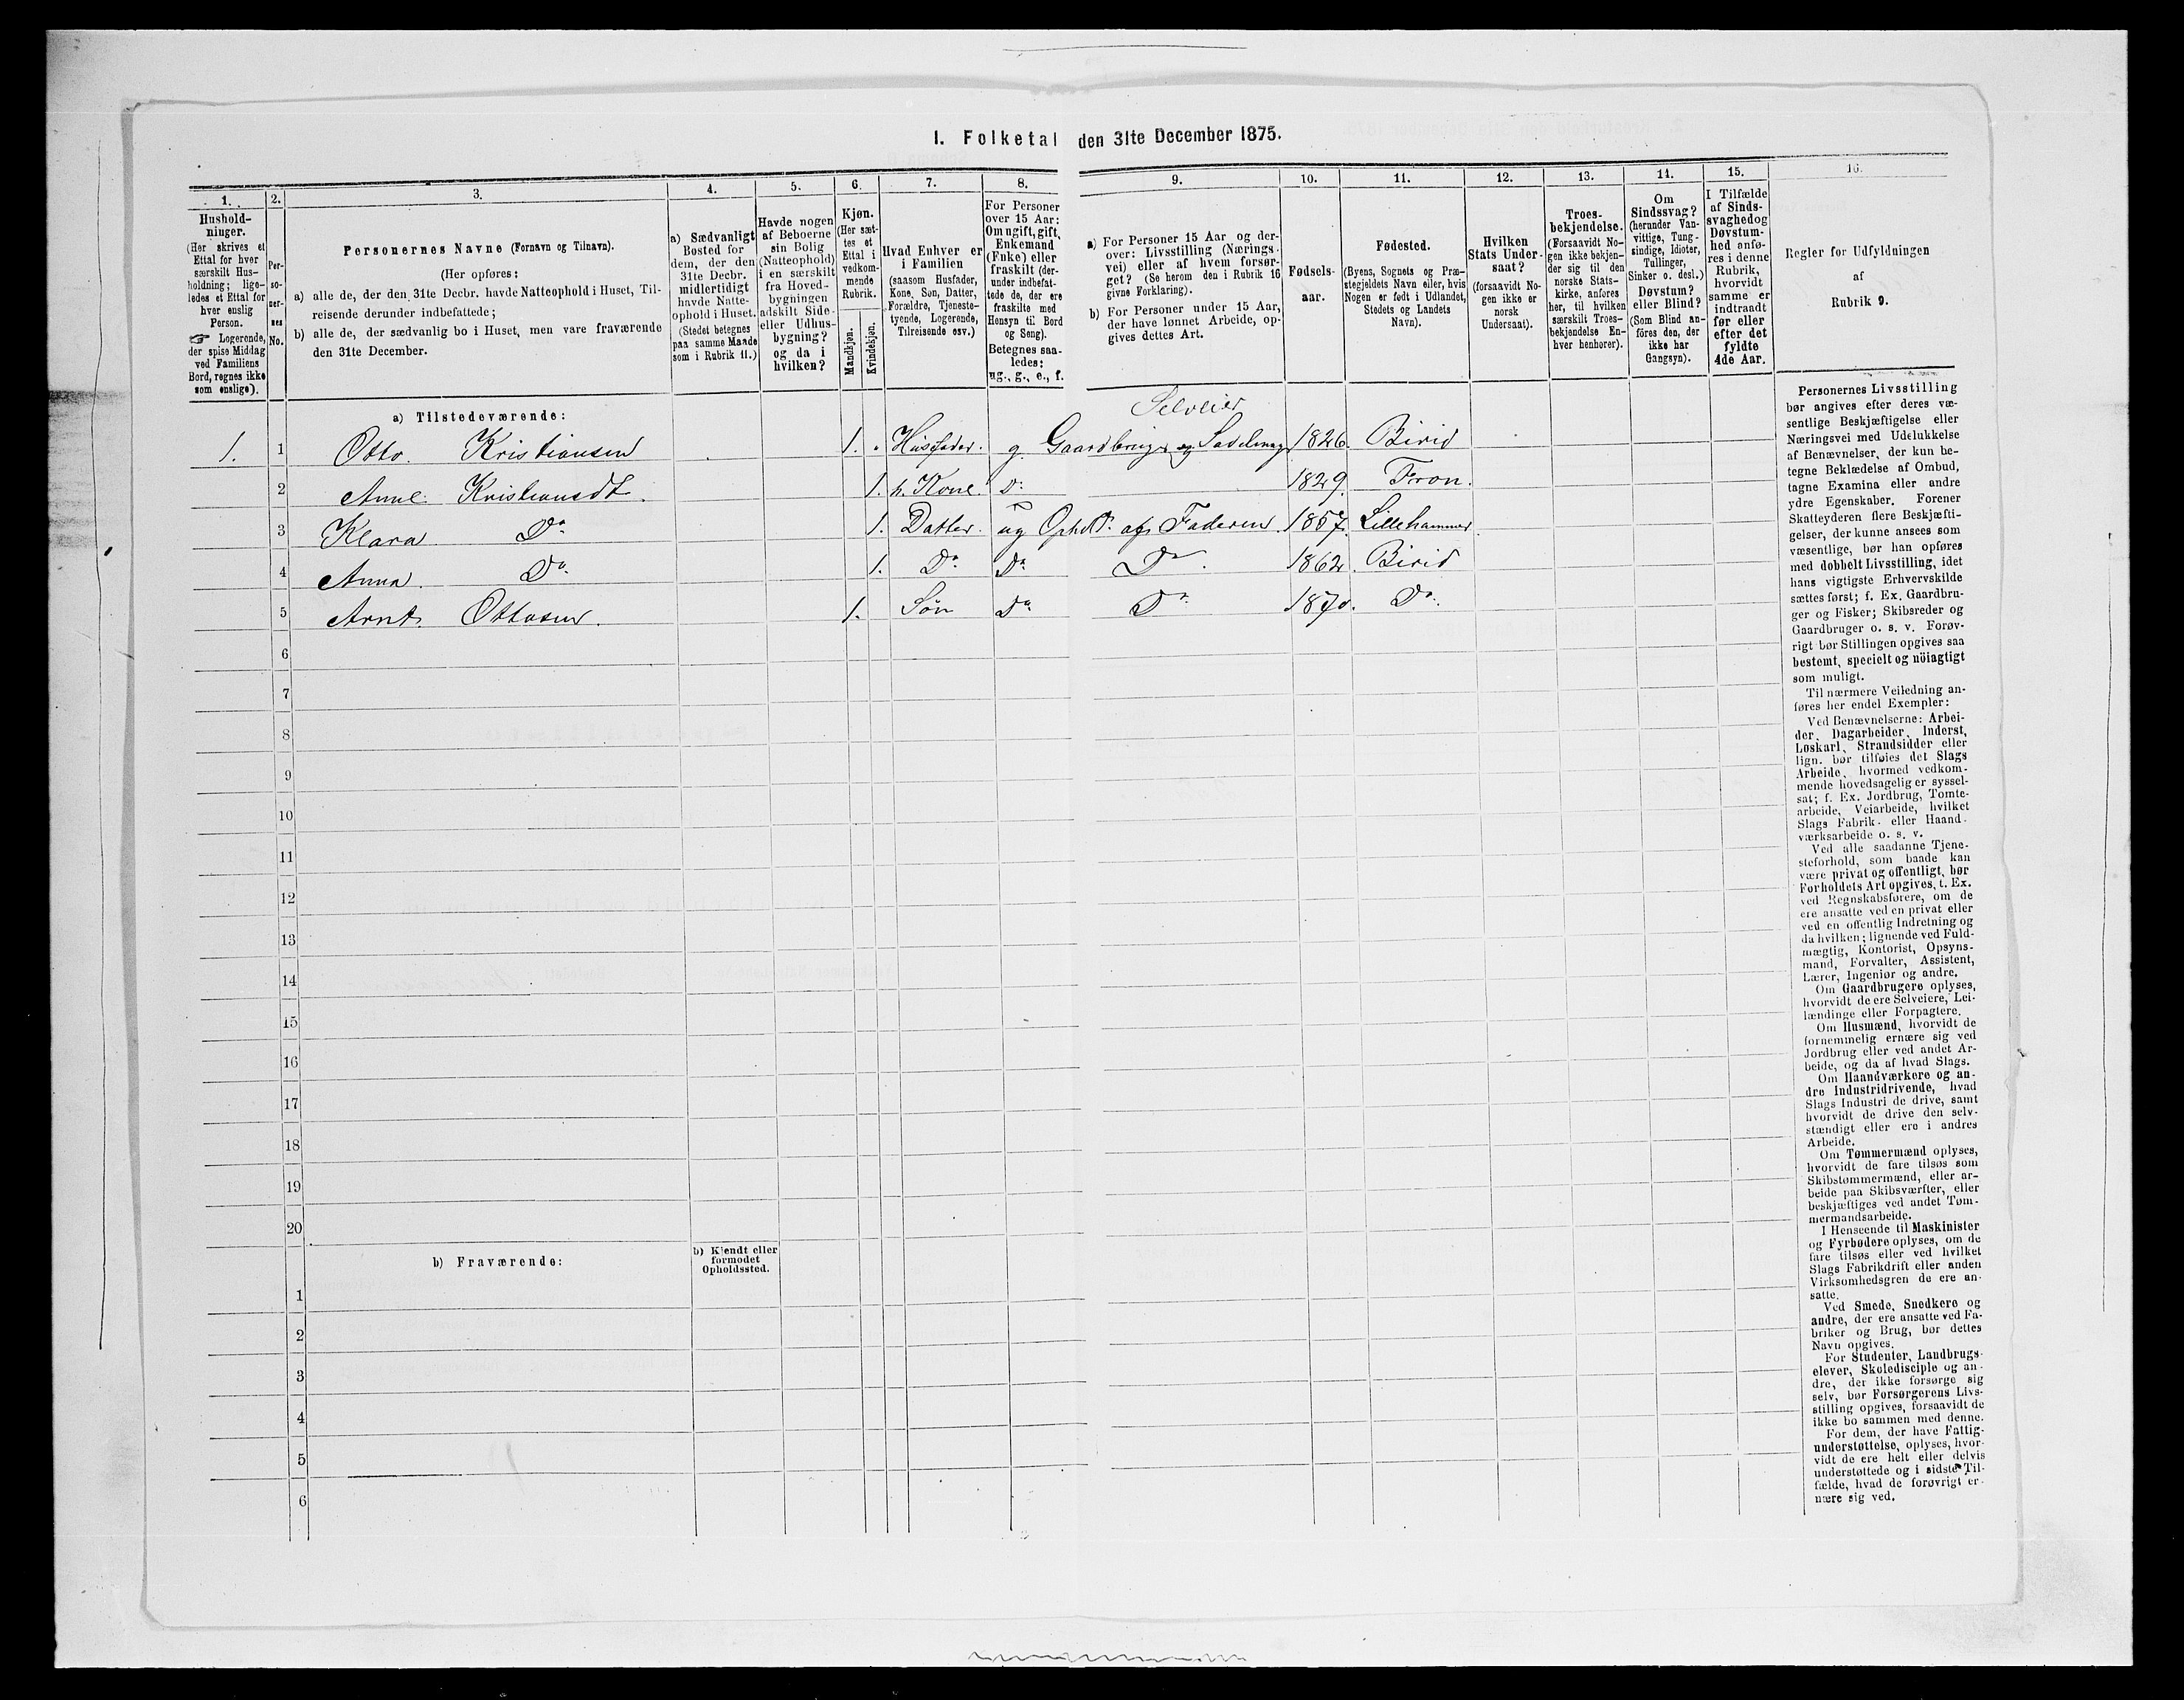 I. Folketal den 31te December 1875.
1.
Hushold-
ninger.
(Her skrives et
Ettal for hver
særskilt Hus-
holdning; lige-
ledes et Ettal for
hver enslig
Person.
☞ Logerende,
der spise Middag
ved Familiens
Bord, regnes ikke
som enslige).
2.
Per-
so-
ner-
nes
No.
3.
Personernes Navne (Fornavn og Tilnavn).
(Her opføres:
a) alle de, der den 31te Decbr. havde Natteophold i Huset, Til-
reisende derunder indbefattede;
b) alle de, der sædvanlig bo i Huset, men vare fraværende
den 31te December.
4.
a) Sædvanligt
Bosted for
dem, der den
31te Decbr.
midlertidigt
havde Natte-
ophold i Huset.
(Stedet betegnes
paa samme Maade
som i Rubrik 11.)
5.
Havde nogen
af Beboerne
sin Bolig
(Natteophold)
i en særskilt
fra Hoved-
bygningen
adskilt Side-
eller Udhus-
bygning?
og da i
hvilken?
6.
Kjøn.
(Her sæt-
tes et
Ettal i
vedkom-
mende
Rubrik.
Mandkjøn.
Kvindekjøn.
7.
Hvad Enhver er
i Familien
(saasom Husfader,
Kone, Søn, Datter,
Forældre, Tjeneste-
tyende, Logerende,
Tilreisende osv.)
8.
For Personer
over 15 Aar:
Om ugift, gift,
Enkemand
(Enke) eller
fraskilt (der-
under indbefat-
tede de, der ere
fraskilte med
Hensyn til Bord
og Seng).
Betegnes saa-
ledes:
ug., g., e., f.
9.
a) For Personer 15 Aar og der-
over: Livsstilling (Nærings-
vei) eller af hvem forsør-
get? (Se herom den i Rubrik 16
givne Forklaring).
b) For Personer under 15 Aar,
der have lønnet Arbeide, op-
gives dettes Art.
10.
Fødsels-
aar.
11.
Fødested.
(Byens, Sognets og Præ-
stegjeldets Navn eller, hvis
Nogen er født i Udlandet,
Stedets og Landets
Navn).
12.
Hvilken
Stats Under-
saat?
(forsaavidt No-
gen ikke er
norsk
Undersaat).
13.
Troes-
bekjendelse.
(Forsaavidt No-
gen ikke bekjen-
der sig til den
norske Stats-
kirke, anføres
her, til hvilken
særskilt Troes-
bekjendelse En-
hver henhører).
14.
Om
Sindssvag?
(herunder Van-
vittige, Tung-
sindige, Idioter,
Tullinger,
Sinker o. desl.)
Døvstum?
eller Blind?
(Som Blind an-
føres den, der
ikke har
Gangsyn).
15.
I Tilfælde
af Sinds-
svaghed og
Døvstum-
hed anfø-
res i denne
Rubrik,
hvorvidt
samme er
indtraadt
før eller
efter det
fyldte
4de Aar.
16.
Regler for Udfyldningen
af
Rubrik 9.
a) Tilstedeværende:
Selveier
1. 1 Otto Kristiansen 1. Husfader. g. Gaardbruger og Sadelmag 1826. Birid
2 Anne Kristiansdt. 1. h. Kone. Do 1829. Fron.
3 Klara Do 1. Datter. ug Ophdt. af Faderen. 1857. Lillehammer
4 Anna. Do 1. Do Do Do 1862. Birid
5 Arnt Ottosen. 1. Søn Do Do 1870. Do.
6
7
8
9
10
11
12
13
14
15
16
17
18
19
20
b) Fraværende:
b) Kjendt eller
formodet
Opholdssted.
1
2
3
4
5
6
Personernes Livsstilling
bør angives efter deres væ-
sentlige Beskjæftigelse eller
Næringsvei med Udelukkelse
af Benævnelser, der kun be-
tegne Beklædelse af Ombud,
tagne Examina eller andre
ydre Egenskaber. Forener
Skatteyderen flere Beskjæfti-
gelser, der kunne ansees som
væsentlige, bør han opføres
med dobbelt Livsstilling, idet
hans vigtigste Erhvervskilde
sættes først; f. Ex. Gaardbru-
ger og Fisker; Skibsreder og
Gaardbruger o. s. v. Forøv-
rigt bør Stillingen opgives saa
bestemt, specielt og nöiagtigt
som muligt.
Til nærmere Veiledning an-
føres her endel Exempler:
Ved Benævnelserne: Arbei-
der, Dagarbeider, Inderst,
Løskarl, Strandsidder eller
lign. bør tilføies det Slags
Arbeide, hvormed vedkom-
mende hovedsagelig er syssel-
sat; f. Ex. Jordbrug, Tomte-
arbeide, Veiarbeide, hvilket
Slags Fabrik- eller Haand-
værksarbeide o. s. v.
Ved alle saadanne Tjene-
steforhold, som baade kan
være privat og offentligt, bør
Forholdets Art opgives, t. Ex.
ved Regnskabsførere, om de
ere ansatte ved en privat eller
ved en offentlig Indretning og
da hvilken; lignende ved Fuld-
mægtig, Kontorist, Opsyns-
mand, Forvalter, Assistent,
Lærer, Ingeniør og andre.
Om Gaardbrugere oplyses,
hvorvidt de ere Selveiere, Lei-
lændinge eller Forpagtere.
Om Husmænd, hvorvidt de
fornemmelig ernære sig ved
Jordbrug eller ved andet Ar-
beide, og da af hvad Slags.
Om Haandværkere og an-
dre Industridrivende, hvad
Slags Industri de drive, samt
hvorvidt de drive den selv-
stændigt eller ere i andres
Arbeide.
Om Tømmermænd oplyses,
hvorvidt de fare tilsøs som
Skibstømmermænd, eller ar-
beide paa Skibsværfter, eller
beskjæftiges ved andet Tøm-
mermandsarbeide.
I Henseende til Maskinister
og Fyrbødere oplyses, om de
fare tilsøs eller ved hvilket
Slags Fabrikdrift eller anden
Virksomhedsgren de ere an-
satte.
Ved Smede, Snedkere og
andre, der ere ansatte ved Fa-
briker og Brug, bør dettes
Navn opgives.
For Studenter, Landbrugs-
elever, Skoledisciple og an-
dre, der ikke forsørge sig
selv, bør Forsørgerens Livs-
stilling opgives, forsaavidt de
ikke bo sammen med denne.
For dem, der have Fattig-
understøttelse, oplyses, hvor-
vidt de ere helt eller delvis
understøttede og i sidste Til-
fælde, hvad de forøvrigt er-
nære sig ved.